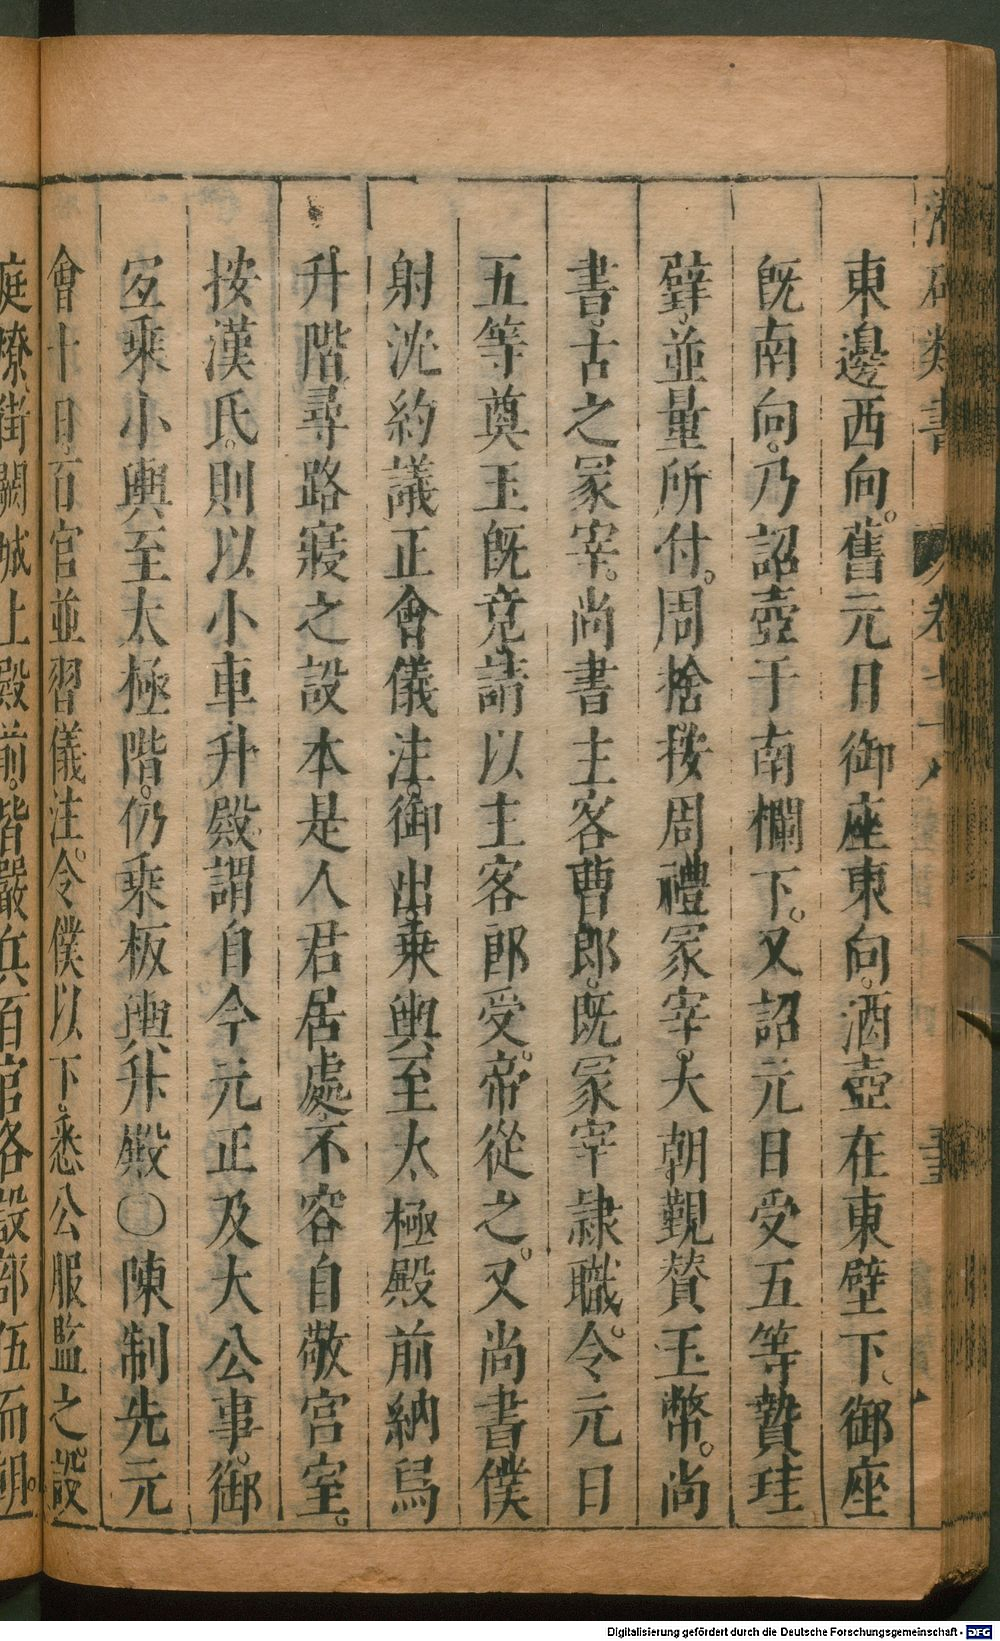 潛確類書　卷七十八
東邊西向。舊元日御座東向。酒壺在東壁下、御座
旣南向。乃詔壺于南欄下。又詔元日受五等贄珪
璧。並量所付。周捨按周禮冢宰。大朝覲贊玉幣。尚
書。古之冢宰。尚書主客曹郎。旣冢宰隷職。令元日
五等奠玉旣竟。請以主客郎受。帝從之。又尚書僕
射沈約議。正會儀注。御出。乗輿至太極殿前。納舄
升階。尋路寢之設。本是人君居處。不容自敬宮室。
按漢氏。則以小車升殿。謂自今元正及大公事。御
宐乘小輿至太極階。仍乗板輿升殿○陳制先元
會十日。百官並習儀注。令僕以下。悉公服監之。設
庭燎街闕城上殿前。皆嚴兵百官各設部伍而朝。
Digitalisierung gefördert durch die Deutsche Forschungsgemeinschaft - DFG